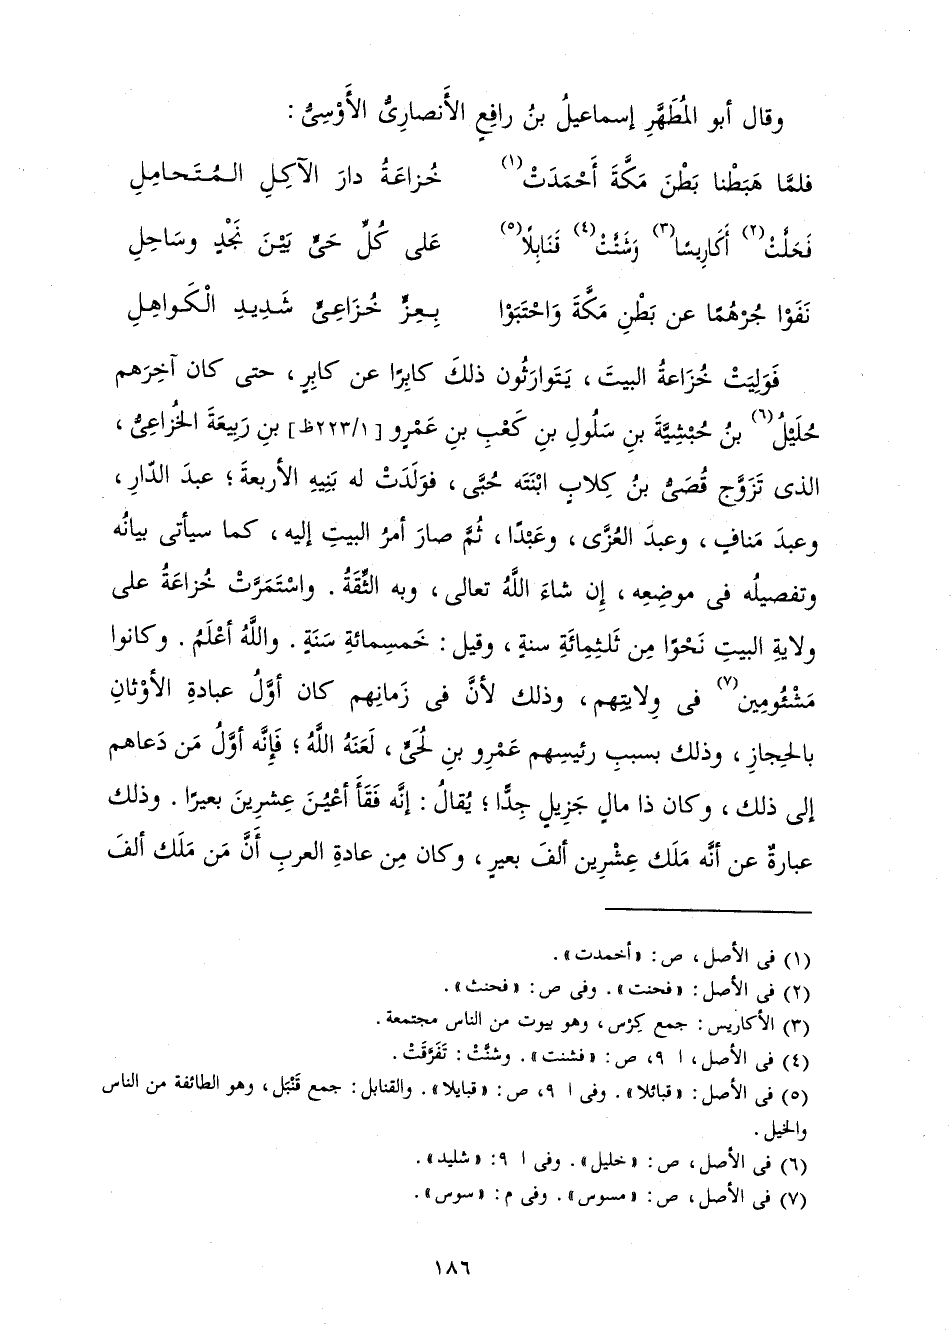 وقال أبو المُطَهَّرِ إسماعيلُ بنُ رافِعٍ الأَنصارِىُّ الأَوْسِىُّ :
فلمَّا هَبَطْنا بَطْنَ مَكَّةَ أَحْمَدَتْ(١) خُزاعَةُ دارَ الآكِلِ المُتَحامِلِ
فَحَلَّتْ(٢) أَكَارِيسًا(٣) وَشَنَّتْ(٤) قَنَابِلًا(٥) عَلى كُلِّ حَىٍّ بَيْنَ نَجْدٍ وسَاحِلِ
نَفَوْا جُرْهُمًا عن بَطْنِ مَكَّةَ وَاحْتَبَوْا بِعِزٍّ خُزَاعِىٍّ شَدِيدِ الْكَواهِلِ
فَوَلِيَتْ خُزَاعةُ البيتَ ، يَتَوارَثُون ذلكَ كابِرًا عن كابِرٍ ، حتى كان آخِرَهم
حُلَيْلُ(٦) بنُ حُبْشِيَّةَ بنِ سَلُولِ بنِ كَعْبِ بنِ عَمْرِو [ ٢٢٣/١ظ ] بنِ رَبِيعَةَ الخُزاعِىُّ ،
الذى تَزَوَّج قُصَىُّ بنُ كِلابٍ ابْنَتَه حُبَّى ، فوَلَدَتْ له بَنِيهِ الأربعةَ ؛ عبدَ الدّارِ ،
وعبدَ مَنافٍ ، وعبدَ العُزَّى ، وعَبْدًا ، ثُمَّ صارَ أمرُ البيتِ إليه ، كما سيأتى بيانُه
وتفصيلُه فى موضِعِه ، إن شاءَ اللَّهُ تعالى ، وبه الثِّقَةُ . واسْتَمَرَّتْ خُزاعَةُ على
ولايةِ البيتِ نَحْوًا مِن ثَلثِمِائَةِ سنةٍ ، وقيل : خَمسِمائةِ سَنَةٍ . واللَّهُ أعْلَمُ . وكانوا
مَشْئُومِين(٧) فى وِلايتِهم ، وذلك لأنَّ فى زَمانِهم كان أوَّلُ عبادةِ الأوْثانِ
بالحِجازِ ، وذلك بسببِ رئيسِهم عَمْرِو بنِ لُحَىٍّ ، لَعَنَهُ اللَّهُ ؛ فَإنَّه أوَّلُ مَن دَعاهم
إلى ذلك ، وكان ذا مالٍ جَزِيلٍ جِدًّا ؛ يُقالُ : إنَّه فَقَأَ أعْيُنَ عِشرِينَ بعيرًا . وذلك
عبارةٌ عن أنَّه مَلَك عِشْرِين ألفَ بعيرٍ ، وكان مِن عادةِ العربِ أَنَّ مَن مَلَك ألفَ
(١) فى الأصل ، ص : « أخمدت » .
(٢) فى الأصل : « فحنت » . وفى ص : « فحنث » .
(٣) الأكاريس : جمع كِرْس ، وهو بيوت من الناس مجتمعة .
(٤) فى الأصل ، ا ٩، ص : « فشنت » . وشنَّتْ : تَفَرَّقَتْ .
(٥) فى الأصل : « قبائلا » . وفى ا ٩، ص : « قبايلا » . والقنابل : جمع قَنْبَل ، وهو الطائفة من الناس
والخيل .
(٦) فى الأصل ، ص : « خليل » . وفى ا ٩: « شليد » .
(٧) فى الأصل ، ص : « مسوس » . وفى م : « سوس » .
١٨٦